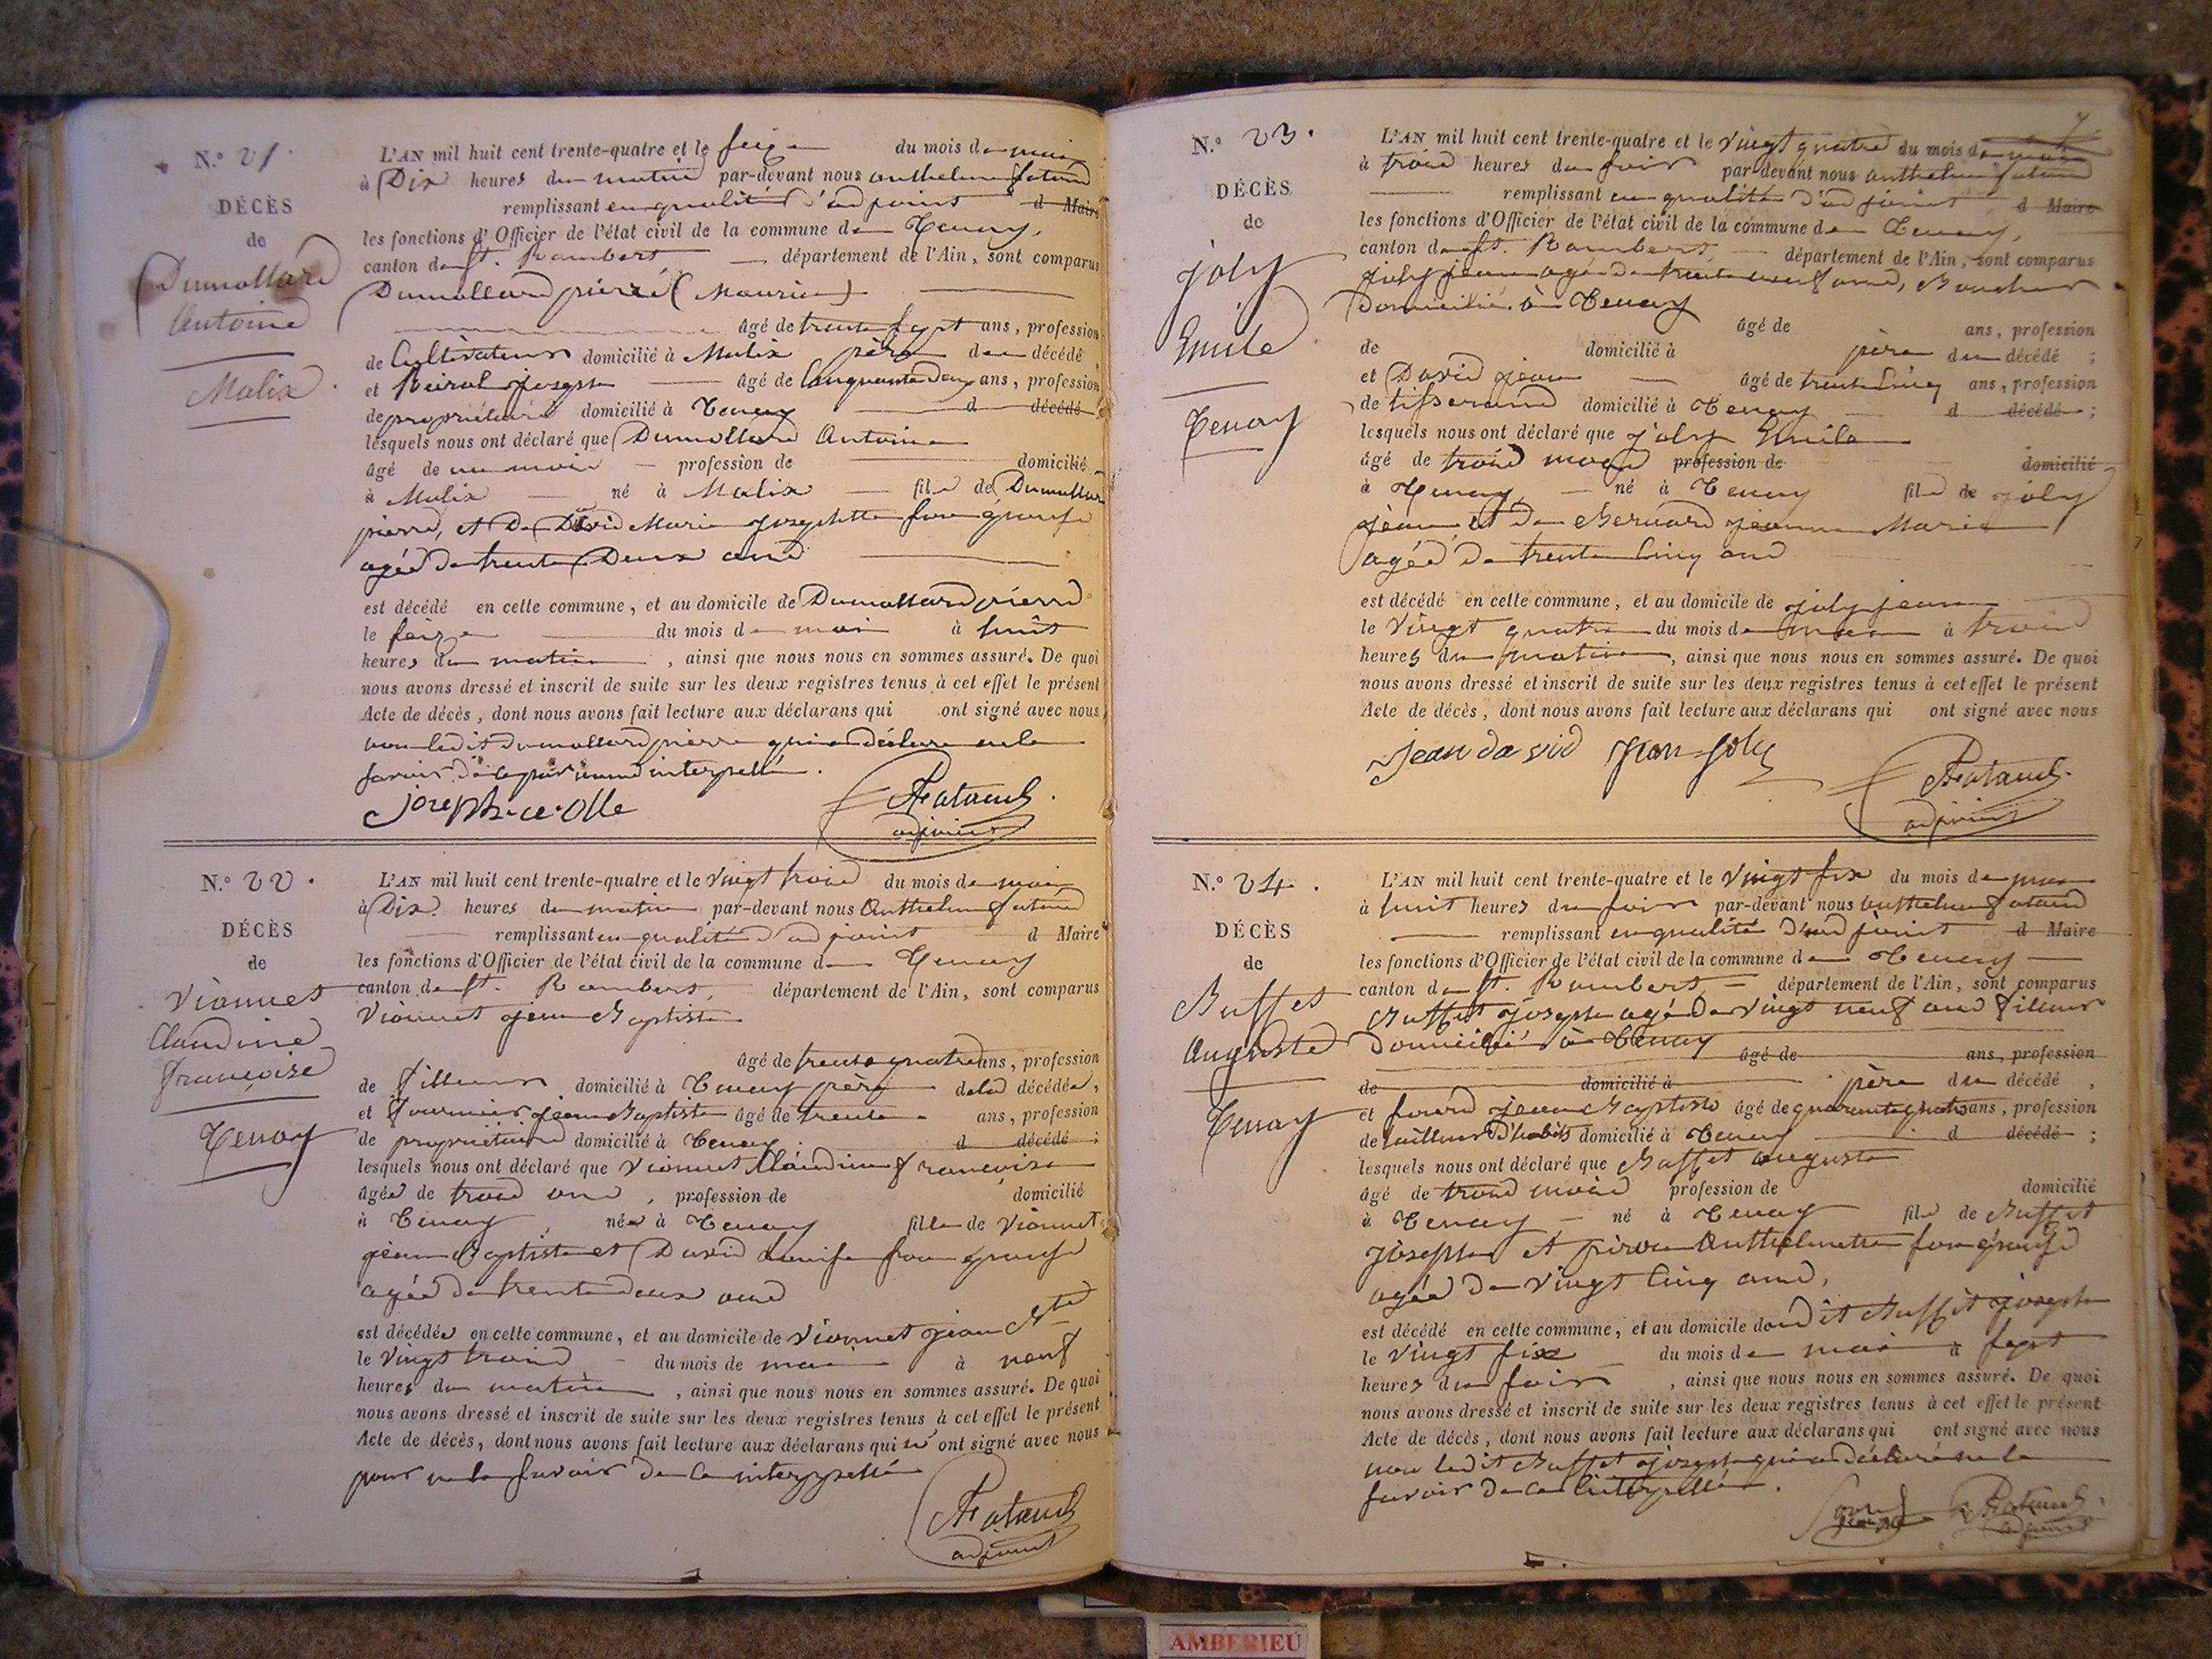 N.º 21.
DÉCÈS
de
Dumollard
Antoine
Malix.
L'AN mil huit cent trente-quatre et le seize du mois de mai
à Dix heures du matin par-devant nous anthelme fataud
remplissant en qualité d'adjoint d Maire
les fonctions d'Officier de l'état civil de la commune de Tenay,
canton de St. Rambert département de l'Ain, sont comparus
Dumollard pierre (Maurice)
âgé de trente sept ans, profession
de Cultivateur domicilié à Malix père du décédé
et Reirol joseph âgé de Cinquante deux ans, profession
de propriétaire domicilié à Tenay d décédé
lesquels nous ont déclaré que Dumollard Antoine
âgé de un mois profession de domicilié
à Malix né à Malix fils de Dumollard
pierre, et De David Marie josephette son épouse
agée de trente Deux ans
est décédé en cette commune, et au domicile de Dumollard pierre
le seize du mois de mai à huit
heures du matin, ainsi que nous nous en sommes assuré. De quoi
nous avons dressé et inscrit de suite sur les deux registres tenus à cet effet le présent
Acte de décès, dont nous avons fait lecture aux déclarans qui ont signé avec nous
non ledit Dumollard pierre qui a déclaré ne le
savoir de ce par nous interpellé.
joseph
AFataud
adjoint
N.º 22.
DÉCÈS
de
Vionnet
Claudine
françoise
Tenay
L'AN mil huit cent trente-quatre et le vingt trois du mois de mai
à Dix heures du matin par-devant nous Anthelme fataud
remplissant en qualité d'adjoint d Maire
les fonctions d'Officier de l'état civil de la commune de Tenay
canton de St. Rambert, département de l'Ain, sont comparus
Vionnet jean Baptiste
âgé de trente quatre ans, profession
de filleur domicilié à Tenay père de la décédée,
et fournier jean Baptiste âgé de trente ans, profession
de propriétaire domicilié à Tenay d décédé;
lesquels nous ont déclaré que Vionnet Claudine françoise
âgée de trois ans, profession de domicilié
à Tenay, née à Tenay fille de Vionnet
jean Baptiste et David Denise son épouse
agée de trente deux ans
est décédée en cette commune, et au domicile de Vionnet jean Bte
le vingt trois du mois de mai à neuf
heures du matin, ainsi que nous nous en sommes assuré. De quoi
nous avons dressé et inscrit de suite sur les deux registres tenus à cet effet le présent
Acte de décès, dont nous avons fait lecture aux déclarans qui n'ont signé avec nous
pour ne le savoir de ce interppellé
AFataud
adjoint
7
N.º 23.
DÉCÈS
de
joly
Emile
Tenay
L'AN mil huit cent trente-quatre et le vingt quatre du mois de mai
à trois heures du soir par-devant nous anthelme fataud
remplissant en qualité d'adjoint d Maire
les fonctions d'Officier de l'état civil de la commune de Tenay,
canton de St. Rambert département de l'Ain, sont comparus
joly jean agé de trente neuf ans, Boucher
Domicilié à Tenay
âgé de ans, profession
de domicilié à père du décédé;
et David jean âgé de trente Cinq ans, profession
de tisserand domicilié à Tenay d décédé;
lesquels nous ont déclaré que joly Emile
âgé de trois mois profession de domicilié
à Tenay, né à Tenay fils de joly
jean et de Bernard jeanne Marie
agée de trente Cinq ans
est décédé en cette commune, et au domicile de joly jean
le vingt quatre du mois de mai à trois
heures du matin, ainsi que nous nous en sommes assuré. De quoi
nous avons dressé et inscrit de suite sur les deux registres tenus à cet effet le présent
Acte de décès, dont nous avons fait lecture aux déclarans qui ont signé avec nous
jean david jean joly
AFataud
adjoint
N.º 24.
DÉCÈS
de
Buffet
Auguste
Tenay
L'AN mil huit cent trente-quatre et le vingt six du mois de mai
à huit heures du soir par-devant nous anthelme fataud
remplissant en qualité d'adjoint d Maire
les fonctions d'Officier de l'état civil de la commune de Tenay
canton de St. Rambert département de l'Ain, sont comparus
Buffet joseph agé de vingt neuf ans filleur
Domicilié à Tenay âgé de ans, profession
de domicilié à père du décédé,
et jean Baptiste âgé de quarente quatre ans, profession
de tailleur d'habits domicilié à Tenay d décédé;
lesquels nous ont déclaré que Buffet auguste
âgé de trois mois profession de domicilié
à Tenay né à Tenay fils de Buffet
joseph et Anthelmette son épouse
agée de vingt Cinq ans,
est décédé en cette commune, et au domicile dudit Buffet joseph
le vingt six du mois de mai à sept
heures du soir, ainsi que nous nous en sommes assuré. De quoi
nous avons dressé et inscrit de suite sur les deux registres tenus à cet effet le présent
Acte de décès, dont nous avons fait lecture aux déclarans qui ont signé avec nous
non ledit Buffet joseph qui a déclaré ne le
savoir de ce interpellé.
AFataud
adjoint
AMBERIEU